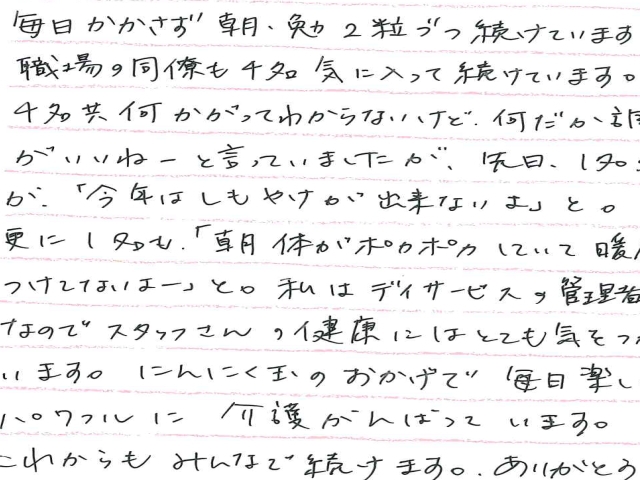 毎日かかさず朝、晩2粒づつ続けています
職場の同僚も4名気に入って続けています。
4名共何かがってわからないけど、何だか調
がいいねーと言っていましたが、先日、1名
が、「今年はしもやけが出来ないよ」と。
更に1名も、「朝体がポカポカしていて暖
つけてないよー」と。私はデイサービスの管理者
なのでスタッフさんの健康にはとても気をつ
います。にんにく玉のおかげで毎日楽し
パワフルに介護がんばっています。
これからもみんなで続けます。ありがとう